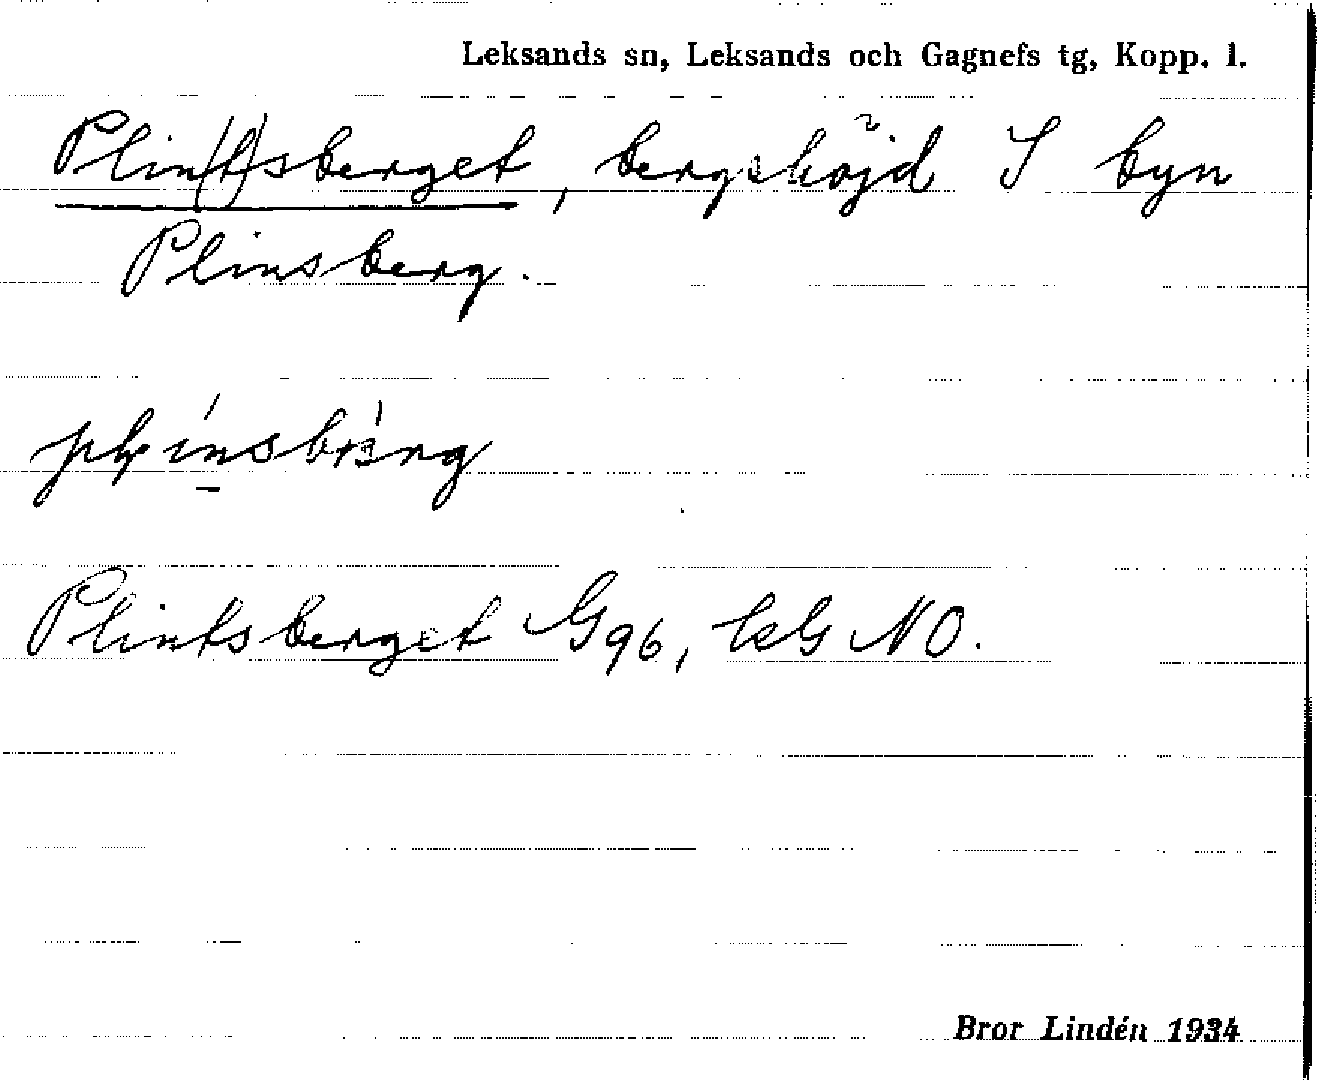 Leksands sn, Leksands och Gagnefs tg, Kopp. l.
Plin(t)sberget, bergshöjd I byn
Plinsberg.
Plintsberget G96, kG NO.
Bror Lindén 1934